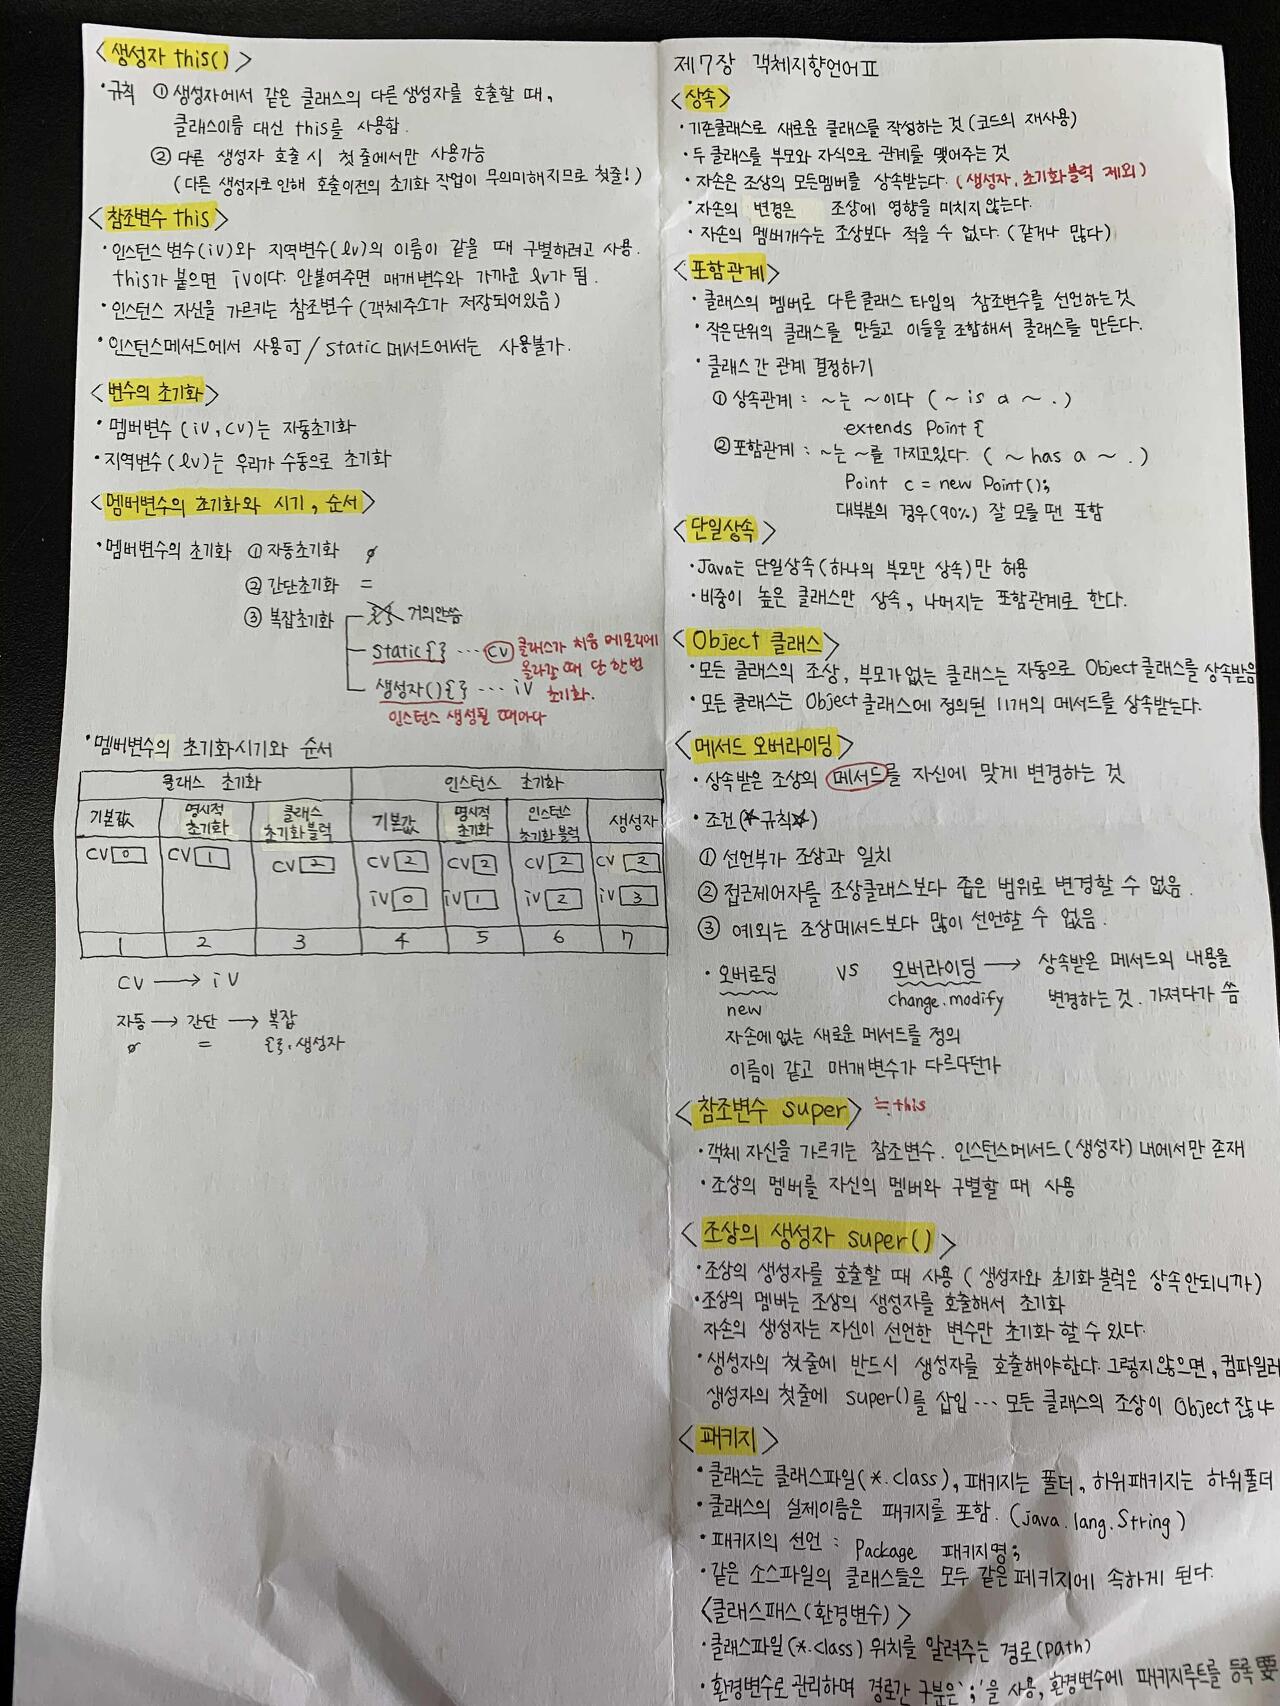 <생성자 this()>
·규칙 ① 생성자에서 같은 클래스의 다른 생성자를 호출할 때,
클래스이름 대신 this를 사용함.
② 다른 생성자 호출 시 첫 줄에서만 사용가능
(다른 생성자로 인해 호출이전의 초기화 작업이 무의미해지므로 첫줄!)
<참조변수 this>
·인스턴스 변수(iv)와 지역변수(lv)의 이름이 같을 때 구별하려고 사용.
this가 붙으면 iv이다. 안붙여주면 매개변수와 가까운 lv가 됨.
·인스턴스 자신을 가르키는 참조변수 (객체주소가 저장되어있음)
·인스턴스메서드에서 사용可 / static 메서드에서는 사용불가.
<변수의 초기화>
·멤버변수 (iv, cv)는 자동초기화
·지역변수(lv)는 우리가 수동으로 초기화
<멤버변수의 초기화와 시기, 순서>
·멤버변수의 초기화 ① 자동초기화 0
② 간단초기화 =
③ 복잡초기화 {} 거의안씀
static{} ··· cv 클래스가 처음 메모리에
올라갈 때 단 한번
생성자(){} ··· iv 초기화.
인스턴스 생성될 때마다
·멤버변수의 초기화시기와 순서
클래스 초기화 인스턴스 초기화
기본값 명시적 초기화 클래스 초기화 블럭 기본값 명시적 초기화 인스턴스 초기화 블럭 생성자
cv 0 cv 1 cv 2 cv 2 cv 2 cv 2 cv 2
iv 0 iv 1 iv 2 iv 3
1 2 3 4 5 6 7
cv → iv
자동 → 간단 → 복잡
0 = {}, 생성자
제7장 객체지향언어Ⅱ
<상속>
·기존클래스로 새로운 클래스를 작성하는 것 (코드의 재사용)
·두 클래스를 부모와 자식으로 관계를 맺어주는 것
·자손은 조상의 모든멤버를 상속받는다. (생성자, 초기화블럭 제외)
·자손의 변경은 조상에 영향을 미치지 않는다.
·자손의 멤버개수는 조상보다 적을 수 없다. (같거나 많다)
<포함관계>
·클래스의 멤버로 다른클래스 타입의 참조변수를 선언하는 것
·작은단위의 클래스를 만들고 이들을 조합해서 클래스를 만든다.
·클래스 간 관계 결정하기
① 상속관계 : ~는 ~이다 (~ is a ~ .)
extends Point {
② 포함관계 : ~는 ~를 가지고있다. ( ~ has a ~ .)
Point c = new Point();
대부분의 경우(90%) 잘 모를 땐 포함
<단일상속>
·Java는 단일상속(하나의 부모만 상속)만 허용
·비중이 높은 클래스만 상속, 나머지는 포함관계로 한다.
<Object 클래스>
·모든 클래스의 조상, 부모가 없는 클래스는 자동으로 Object클래스를 상속받음
·모든 클래스는 Object클래스에 정의된 11개의 메서드를 상속받는다.
<메서드 오버라이딩>
·상속받은 조상의 메서드를 자신에 맞게 변경하는 것
·조건(★규칙★)
① 선언부가 조상과 일치
② 접근제어자를 조상클래스보다 좁은 범위로 변경할 수 없음.
③ 예외는 조상메서드보다 많이 선언할 수 없음.
·오버로딩 vs 오버라이딩 → 상속받은 메서드의 내용을
new change.modify 변경하는 것. 가져다가 씀
자손에 없는 새로운 메서드를 정의
이름이 같고 매개변수가 다르다던가
<참조변수 super> ≒this
·객체 자신을 가르키는 참조변수. 인스턴스메서드(생성자) 내에서만 존재
·조상의 멤버를 자신의 멤버와 구별할 때 사용
<조상의 생성자 super()>
·조상의 생성자를 호출할 때 사용 (생성자와 초기화 블럭은 상속안되니까)
·조상의 멤버는 조상의 생성자를 호출해서 초기화
자손의 생성자는 자신이 선언한 변수만 초기화 할 수 있다.
·생성자의 첫줄에 반드시 생성자를 호출해야한다. 그렇지않으면, 컴파일러
생성자의 첫줄에 super()를 삽입 ··· 모든 클래스의 조상이 Object 잖냐
<패키지>
·클래스는 클래스파일(*.class), 패키지는 폴더, 하위패키지는 하위폴더
·클래스의 실제이름은 패키지를 포함. (java.lang.String)
·패키지의 선언 : Package 패키지명;
·같은 소스파일의 클래스들은 모두 같은 페키지에 속하게 된다.
<클래스패스(환경변수)>
·클래스파일(*.class) 위치를 알려주는 경로(path)
·환경변수로 관리하며 경로간 구분은 ';'을 사용, 환경변수에 패키지루트를 등록 要